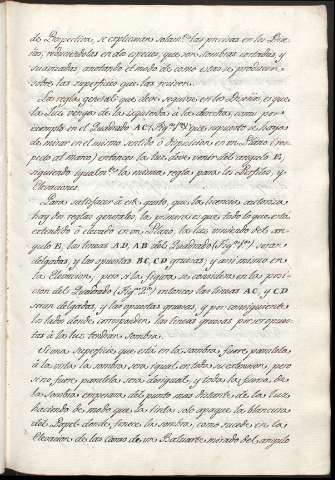 de Perspectiva, se explicaran solamte. las precisas en los Dise-
ños, reduciendolas en dos especies, que son sombras cortadas, y
suavizadas, anotando el modo de como estas se producen
sobre las superficies que las reciven.
La regla general que deve seguirse en los Diseños, es que
la Luz venga de la izquierda à la derecha, como por
exemplo en el Quadrado AC (Figª. 1ª.) que supuesto se haya
de mirar en el mismo sentido ò disposicion en un Plano (res-
pecto al mano) entonces la luz deve venir del angulo E,
siguiendo igualmte. la misma regla para los Perfiles, y
Elevaciones.
Para satisfacer à este gusto, que la licencia autoriza
hay dos reglas generales, la primera es que todo lo que està
extendido ò elevado en un Plano, la luz mirado del an-
gulo E, las lineas AD, AB del Quadrado (Figª. 1ª.) seran
delgadas, y las opuestas BC, CD gruesas; y asi mismo en
la Elevacion, pero si la figura se considera en la posi-
cion del Quadrado (Figª. 2ª.) entonces las lineas AC, y CD
seran delgadas, y las opuestas gruesas, y por consiguiente
los lados donde corresponden las lineas gruesas por ser opues-
tas à la luz tendran sombra.
Si una superficie que està en la sombra, fuere paralela
à la vista la sombra serà igual en toda su extension, pero
si no fuere paralela serà desigual, y toda la fuerza de
la sombra empezara del punto mas distante de la luz
haciendo de modo que la tinta solo apague la blancura
del Papel donde fenece la sombra, como sucede en la
Elevacion de las Caras de un Baluarte mirado del angulo